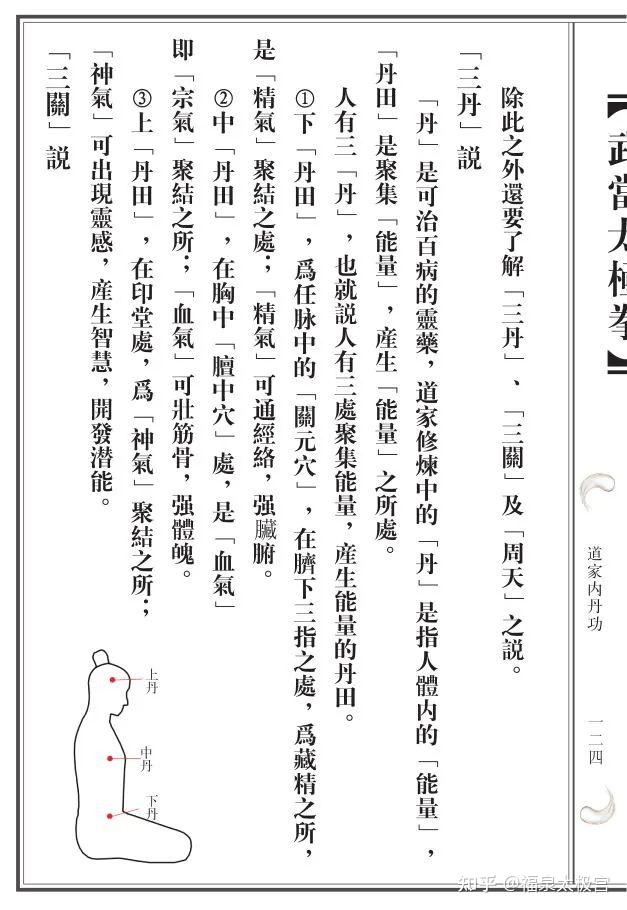 【武當太極拳】
道家内丹功
一二四
除此之外還要了解「三丹」、「三關」及「周天」之説。
「三丹」説
「丹」是可治百病的靈藥，道家修煉中的「丹」是指人體内的「能量」，
「丹田」是聚集「能量」，産生「能量」之所處。
人有三「丹」，也就説人有三處聚集能量，産生能量的丹田。
①下「丹田」，爲任脉中的「關元穴」，在臍下三指之處，爲藏精之所，
是「精氣」聚結之處；「精氣」可通經絡，强臟腑。
②中「丹田」，在胸中「膻中穴」處，是「血氣」
即「宗氣」聚結之所；「血氣」可壯筋骨，强體魄。
③上「丹田」，在印堂處，爲「神氣」聚結之所；
「神氣」可出現靈感，産生智慧，開發潜能。
「三關」説
上丹
中丹
下丹
知乎 @福泉太极宫